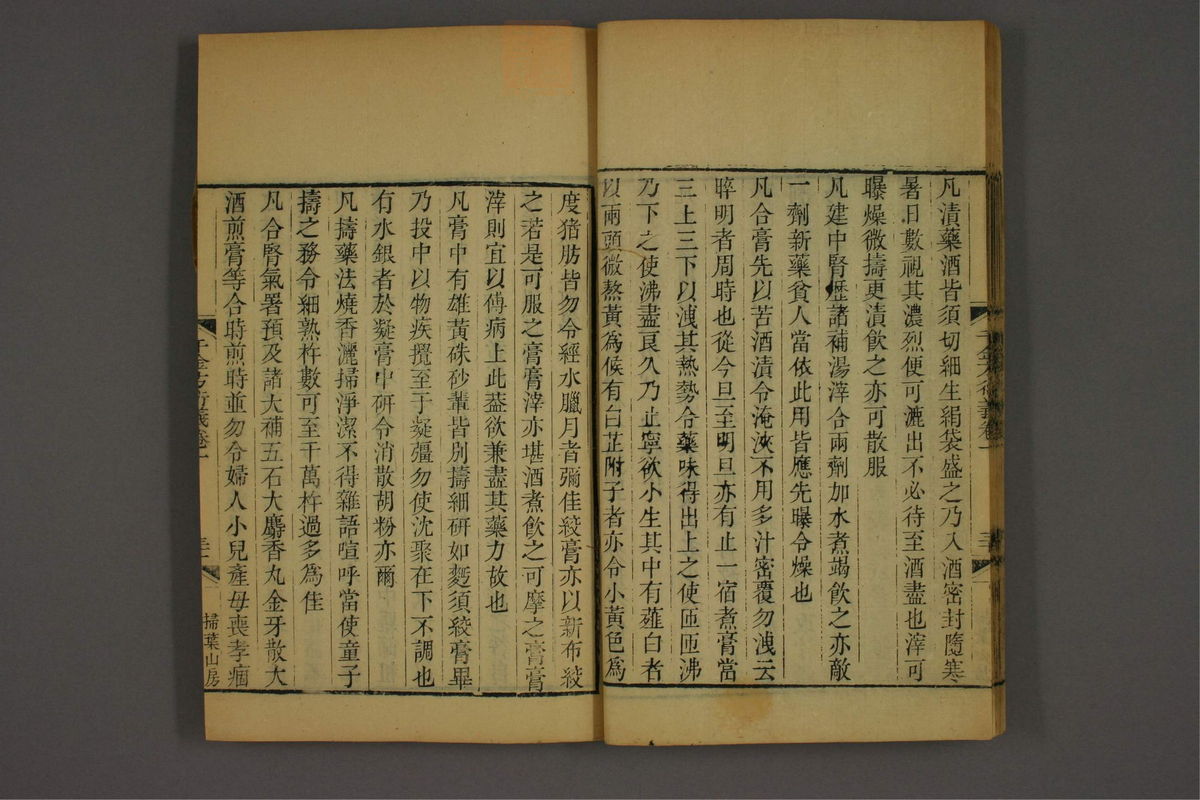 凡漬藥酒皆須切細生絹袋盛之乃入酒密封隨寒
暑日數視其濃烈便可漉出不必待至酒盡也滓可
曝燥微擣更漬飲之亦可散服
凡建中腎瀝諸補湯滓合兩劑加水煮竭飲之亦敵
一劑新藥貧人當依此用皆應先曝令燥也
凡合膏先以苦酒漬令淹浹不用多汁密覆勿洩云
晬明者周時也從今旦至明旦亦有止一宿煮膏當
三上三下以洩其熱勢令藥味得出上之使匝匝沸
乃下之使沸盡良久乃止寧欲小生其中有薤白者
以兩頭微熬黃為候有白芷附子者亦令小黃色為
度猪肪皆勿令經水臘月者彌佳絞膏亦以新布絞
之若是可服之膏膏滓亦堪酒煮飲之可摩之膏膏
滓則宜以傅病上此葢欲兼盡其藥力故也
凡膏中有雄黃硃砂輩皆別擣細研如麪須絞膏畢
乃投中以物疾攪至于凝彊勿使沈聚在下不調也
有水銀者於凝膏中研令消散胡粉亦爾
凡擣藥法燒香灑掃淨潔不得雜語喧呼當使童子
擣之務令細熟杵數可至千萬杵過多為佳
凡合腎氣署預及諸大補五石大麝香丸金牙散大
酒煎膏等合時煎時並勿令婦人小兒產母喪孝痼
千金方衍義卷一
掃葉山房